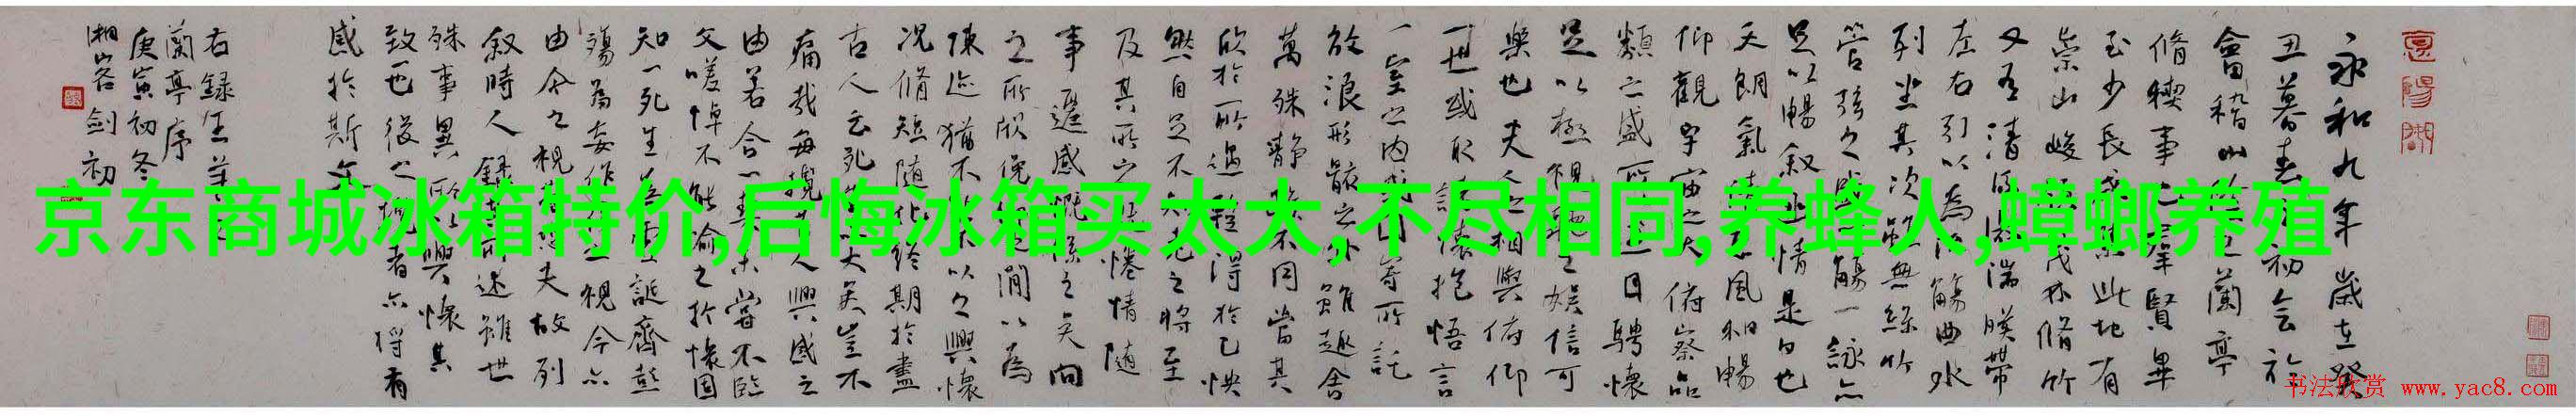 永和九年歲在癸
丑暮春之初会於
會稽山陰之蘭亭
脩禊事也羣賢畢
至少長咸集此地有
崇山峻領茂林脩竹
又有清流激湍暎帶
左右引以為流觴曲水
列坐其次雖無絲竹
管弦之盛一觴一詠亦
足以暢叙幽情是日也
天朗氣清惠風和暢
仰觀宇宙之大俯察品
類之盛所以遊目騁懷
足以極視聽之娛信可
樂也夫人之相與俯仰
一世或取諸懷抱悟言
一室之内或因寄所託
放浪形骸之外雖趣舍
萬殊静躁不同當其
欣於所遇蹔得於己怏
然自足不知老之將至
及其所之既惓情隨
事遷感慨係之矣向
之所欣俛仰之間以為
陳迹猶不能不以之興懷
况脩短随化終期於盡
古人云死生亦大矣豈不
痛哉每攬昔人興感之
由若合一契未嘗不臨
文嗟悼不能喻之於懷固
知一死生為虛誕齊彭
殤為妄作後之視今亦
由今之視昔悲夫故列
叙時人録其所述雖世
殊事異所以興懷其
致一也後之攬者亦将有
感於斯文
右録王羲之
蘭亭序
庚寅初冬
剑初
京东商城冰箱特价,后悔冰箱买太大,不尽相同,养蜂人,蟑螂养殖
书法欣赏 www.yac8.com